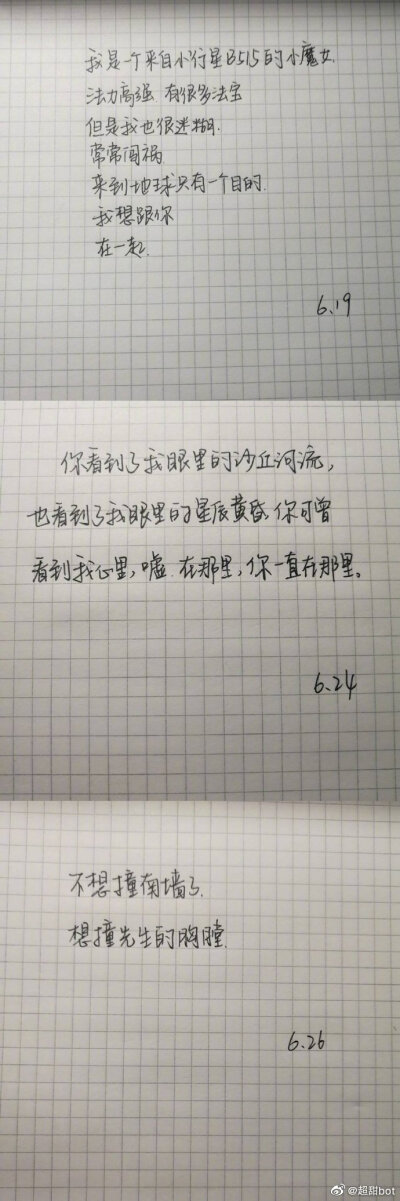 我是一个来自小行星B515的小魔女.
法力高强 有很多法宝
但是我也很迷糊.
常常闯祸
来到地球只有一个目的.
我想跟你
在一起.
6.19
你看到了我眼里的沙丘河流,
也看到了我眼里的星辰黄昏.你可曾
看到我心里,嘘.在那里,你一直在那里。
6.24
不想撞南墙了.
想撞先生的胸膛.
6.26
@超甜bot